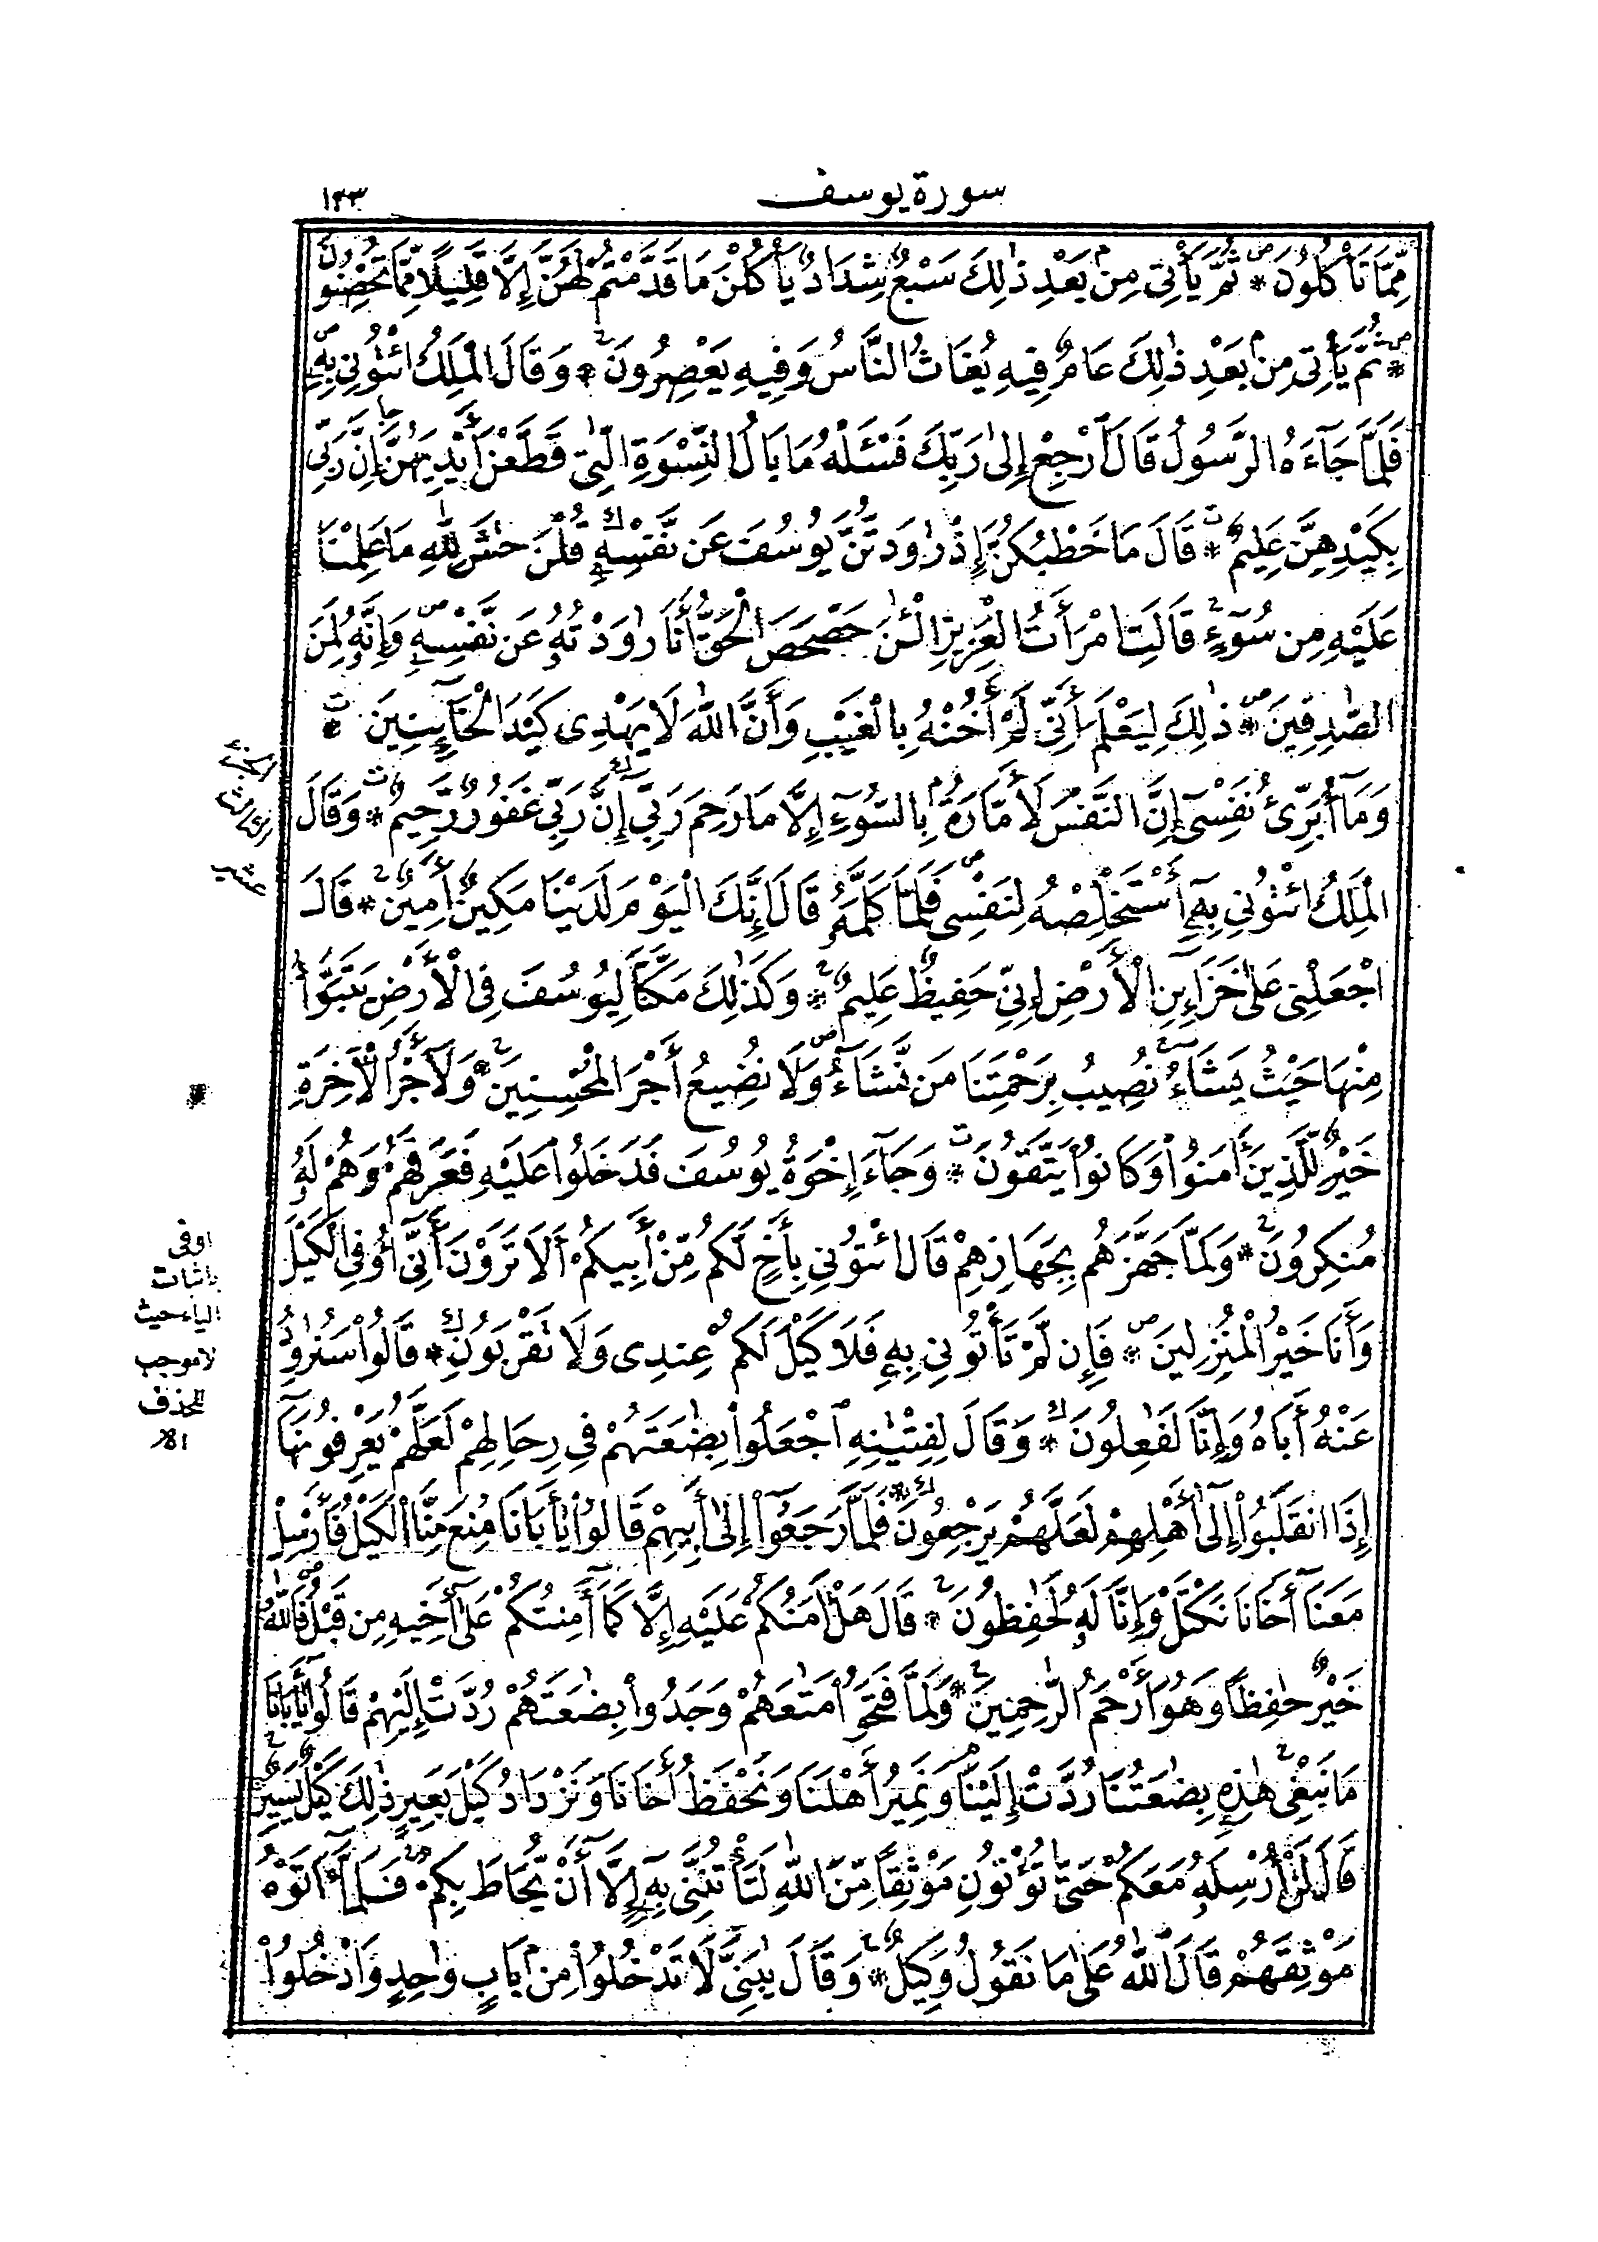 سورة يوسف
١٣٣
مِّمَّا تَأْكُلُونَ * ثُمَّ يَأْتِى مِنۢ بَعْدِ ذَٰلِكَ سَبْعٌ شِدَادٌ يَأْكُلْنَ مَا قَدَّمْتُمْ لَهُنَّ إِلَّا قَلِيلًا مِّمَّا تُحْصِنُونَ
* ثُمَّ يَأْتِى مِنۢ بَعْدِ ذَٰلِكَ عَامٌ فِيهِ يُغَاثُ النَّاسُ وَفِيهِ يَعْصِرُونَ * وَقَالَ الْمَلِكُ ائْتُونِى بِهِ
فَلَمَّا جَآءَهُ الرَّسُولُ قَالَ ارْجِعْ إِلَىٰ رَبِّكَ فَسْـَٔلْهُ مَا بَالُ النِّسْوَةِ الَّٰتِى قَطَّعْنَ أَيْدِيَهُنَّ إِنَّ رَبِّى
بِكَيْدِهِنَّ عَلِيمٌ * قَالَ مَا خَطْبُكُنَّ إِذْ رَٰوَدتُّنَّ يُوسُفَ عَن نَّفْسِهِ قُلْنَ حَٰشَ لِلَّهِ مَا عَلِمْنَا
عَلَيْهِ مِن سُوٓءٍ قَالَتِ امْرَأَتُ الْعَزِيزِ الْـَٰٔنَ حَصْحَصَ الْحَقُّ أَنَا رَٰوَدْتُهُ عَن نَّفْسِهِ وَإِنَّهُ لَمِنَ
الصَّٰدِقِينَ * ذَٰلِكَ لِيَعْلَمَ أَنِّى لَمْ أَخُنْهُ بِالْغَيْبِ وَأَنَّ اللَّهَ لَا يَهْدِى كَيْدَ الْخَآئِنِينَ *
وَمَآ أُبَرِّئُ نَفْسِىٓ إِنَّ النَّفْسَ لَأَمَّارَةٌ بِالسُّوٓءِ إِلَّا مَا رَحِمَ رَبِّىٓ إِنَّ رَبِّى غَفُورٌ رَّحِيمٌ * وَقَالَ
الْمَلِكُ ائْتُونِى بِهِٓ أَسْتَخْلِصْهُ لِنَفْسِى فَلَمَّا كَلَّمَهُ قَالَ إِنَّكَ الْيَوْمَ لَدَيْنَا مَكِينٌ أَمِينٌ * قَالَ
اجْعَلْنِى عَلَىٰ خَزَآئِنِ الْأَرْضِ إِنِّى حَفِيظٌ عَلِيمٌ * وَكَذَٰلِكَ مَكَّنَّا لِيُوسُفَ فِى الْأَرْضِ يَتَبَوَّأُ
مِنْهَا حَيْثُ يَشَآءُ نُصِيبُ بِرَحْمَتِنَا مَن نَّشَآءُ وَلَا نُضِيعُ أَجْرَ الْمُحْسِنِينَ * وَلَأَجْرُ الْأَخِرَةِ
خَيْرٌ لِّلَّذِينَ ءَامَنُوا وَكَانُوا يَتَّقُونَ * وَجَآءَ إِخْوَةُ يُوسُفَ فَدَخَلُوا عَلَيْهِ فَعَرَفَهُمْ وَهُمْ لَهُ
مُنكِرُونَ * وَلَمَّا جَهَّزَهُم بِجَهَازِهِمْ قَالَ ائْتُونِى بِأَخٍ لَّكُم مِّنْ أَبِيكُمْ أَلَا تَرَوْنَ أَنِّىٓ أُوفِى الْكَيْلَ
وَأَنَا خَيْرُ الْمُنزِلِينَ * فَإِن لَّمْ تَأْتُونِى بِهِ فَلَا كَيْلَ لَكُمْ عِندِى وَلَا تَقْرَبُونِ * قَالُوا سَنُرَٰوِدُ
عَنْهُ أَبَاهُ وَإِنَّا لَفَٰعِلُونَ * وَقَالَ لِفِتْيَٰنِهِ اجْعَلُوا بِضَٰعَتَهُمْ فِى رِحَالِهِمْ لَعَلَّهُمْ يَعْرِفُونَهَآ
إِذَا انقَلَبُوٓا إِلَىٰٓ أَهْلِهِمْ لَعَلَّهُمْ يَرْجِعُونَ * فَلَمَّا رَجَعُوٓا إِلَىٰٓ أَبِيهِمْ قَالُوا يَٰٓأَبَانَا مُنِعَ مِنَّا الْكَيْلُ فَأَرْسِلْ
مَعَنَآ أَخَانَا نَكْتَلْ وَإِنَّا لَهُ لَحَٰفِظُونَ * قَالَ هَلْ ءَامَنُكُمْ عَلَيْهِ إِلَّا كَمَآ أَمِنتُكُمْ عَلَىٰٓ أَخِيهِ مِن قَبْلُ فَاللَّهُ
خَيْرٌ حَٰفِظًا وَهُوَ أَرْحَمُ الرَّٰحِمِينَ * وَلَمَّا فَتَحُوا مَتَٰعَهُمْ وَجَدُوا بِضَٰعَتَهُمْ رُدَّتْ إِلَيْهِمْ قَالُوا يَٰٓأَبَانَا
مَا نَبْغِى هَٰذِهِ بِضَٰعَتُنَا رُدَّتْ إِلَيْنَا وَنَمِيرُ أَهْلَنَا وَنَحْفَظُ أَخَانَا وَنَزْدَادُ كَيْلَ بَعِيرٍ ذَٰلِكَ كَيْلٌ يَسِيرٌ
قَالَ لَنْ أُرْسِلَهُ مَعَكُمْ حَتَّىٰ تُؤْتُونِ مَوْثِقًا مِّنَ اللَّهِ لَتَأْتُنَّنِى بِهِٓ إِلَّآ أَنْ يُّحَاطَ بِكُمْ فَلَمَّآ ءَاتَوْهُ
مَوْثِقَهُمْ قَالَ اللَّهُ عَلَىٰ مَا نَقُولُ وَكِيلٌ * وَقَالَ يَٰبَنِىَّ لَا تَدْخُلُوا مِنۢ بَابٍ وَٰحِدٍ وَادْخُلُوا
الجزء
الثالث
عشر
اوفى
باثبات
الياء حيث
لا موجب
للحذف